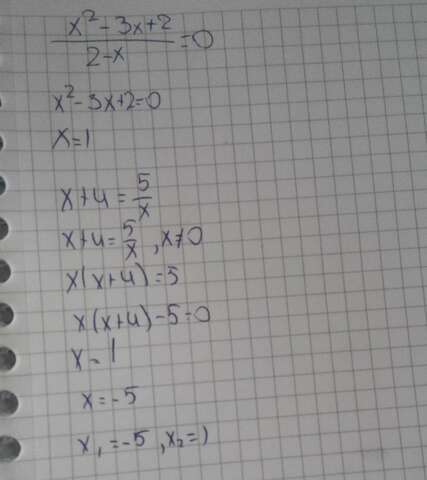 x² - 3x + 2 / 2 - x = 0
x² - 3x + 2 = 0
x = 1
x + 4 = 5/x
x + 4 = 5/x , x ≠ 0
x(x + 4) = 5
x(x + 4) - 5 = 0
x = 1
x = -5
x₁ = -5 , x₂ = 1